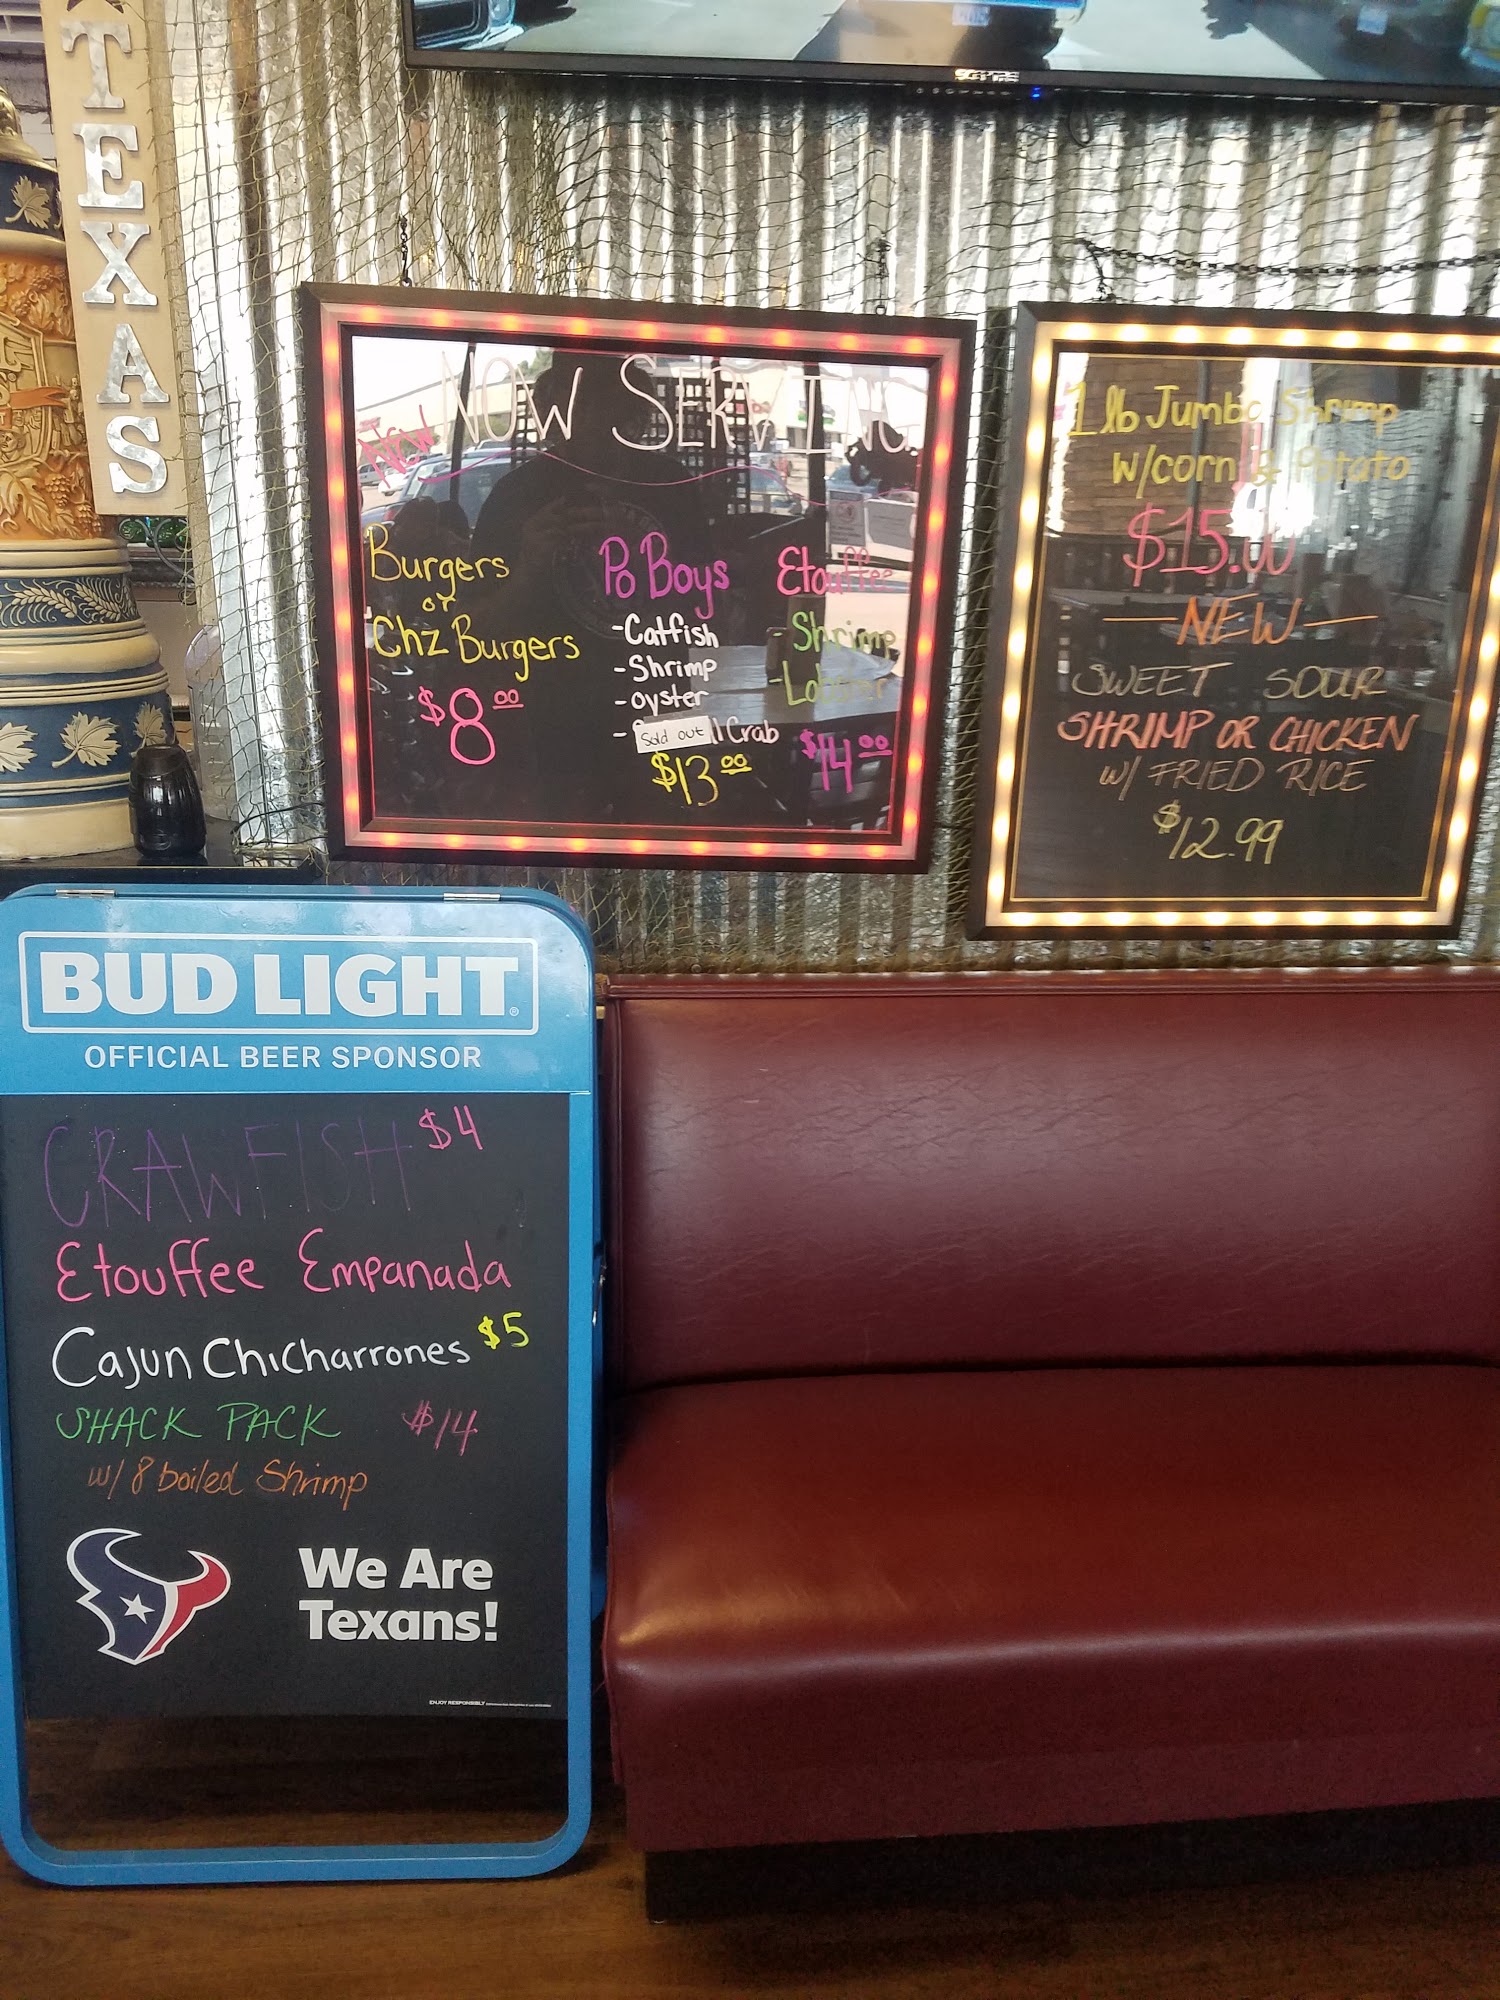 TEXAS
New NOW SERVING
Burgers
or
Chz Burgers
$8.00
Po Boys
-Catfish
-Shrimp
-oyster
- Sold out Crab
$13.00
Etouffee
Shrimp
-Lobster
$14.00
1 lb Jumbo Shrimp
W/corn & Potato
$15.00
—NEW—
SWEET SOUR
SHRIMP OR CHICKEN
W/ FRIED RICE
$12.99
BUD LIGHT®
OFFICIAL BEER SPONSOR
CRAWFISH $4
Etouffee Empanada
Cajun Chicharrones $5
SHACK PACK $14
w/ 8 boiled Shrimp
We Are
Texans!
ENJOY RESPONSIBLY